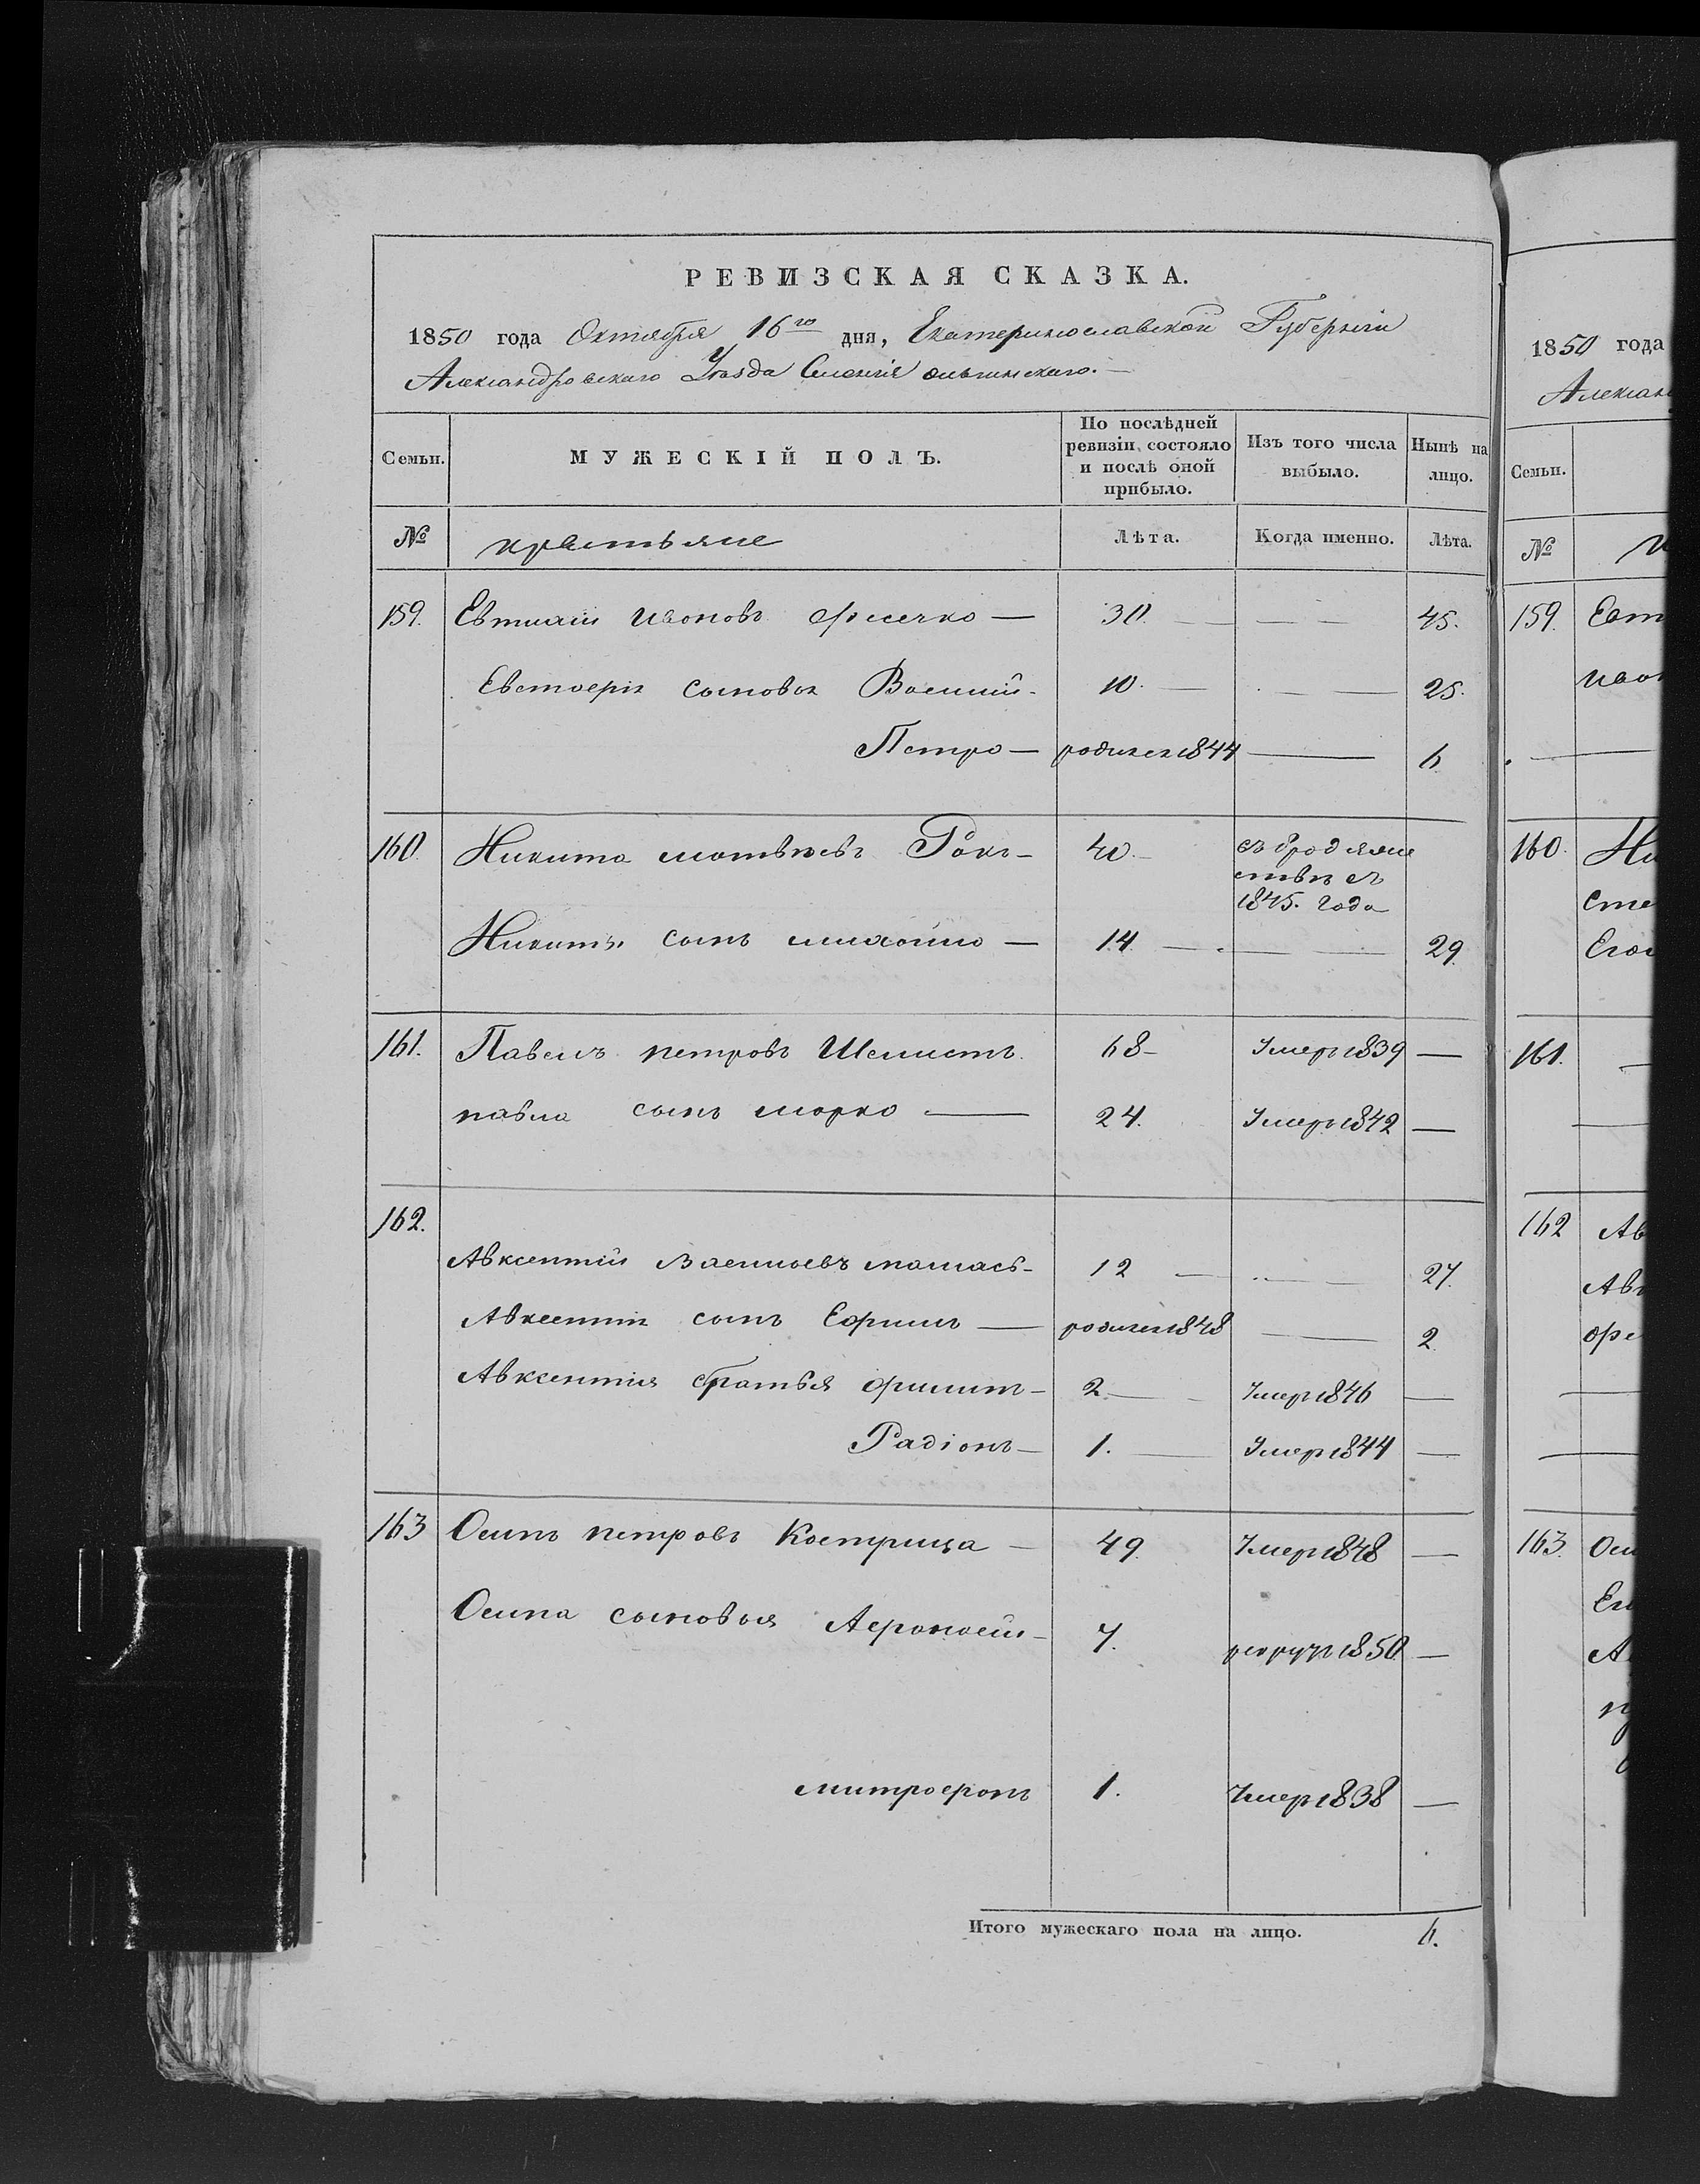 РЕВИЗСКАЯ СКАЗКА.
1850 года Октября 16го дня, Екатеринославской Губерніи
Александровскаго Уезда Селенія
Семьи.
МУЖЕСКІЙ ПОЛЪ.
По послѣдней ревизіи состояло и послѣ оной прибыло.
Изъ того числа выбыло.
Нынѣ на лицо.
№ крестьяне Лѣта. Когда именно. Лѣта.
159. Евтихій Ивановъ — 30. — — 45.
сыновья Василій - 10. — — 25.
Петро — родился 1844 — 6
160. Никита Матвѣевъ Ракъ - 40. -
1845. года
Никиты сынъ Михайло — 14 — — 29.
161. Павелъ Петровъ Шелистъ 68 - Умеръ 1839 —
павла сынъ Марко — 24. Умеръ 1842 —
162.
Авксентій Васильевъ - 12 — — 27.
Авксентія сынъ Ефимъ — родился 1848 — 2
Авксентія братья Филипъ - 2 — Умеръ 1846 —
Радіонъ - 1. — Умеръ 1844 —
163 Осипъ Петровъ Кострица - 49. Умеръ 1848 —
Осипа сыновья Афонасій - 7. рекрут 1850. —
Митрофонъ 1. Умеръ 1838 —
Итого мужескаго пола на лицо. 6.
1850 года
Семьи.
№
159.
160.
161.
162
163.